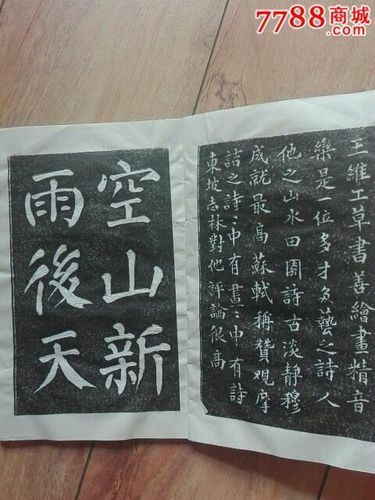 7788商城
王維工草書善繪畫精音
樂是一位多才多藝之詩人
他之山水田園詩古淡靜穆
成就最高蘇軾稱贊觀摩
詰之詩〻中有畫〻中有詩
東坡志林對他評論很高
空山新
雨後天